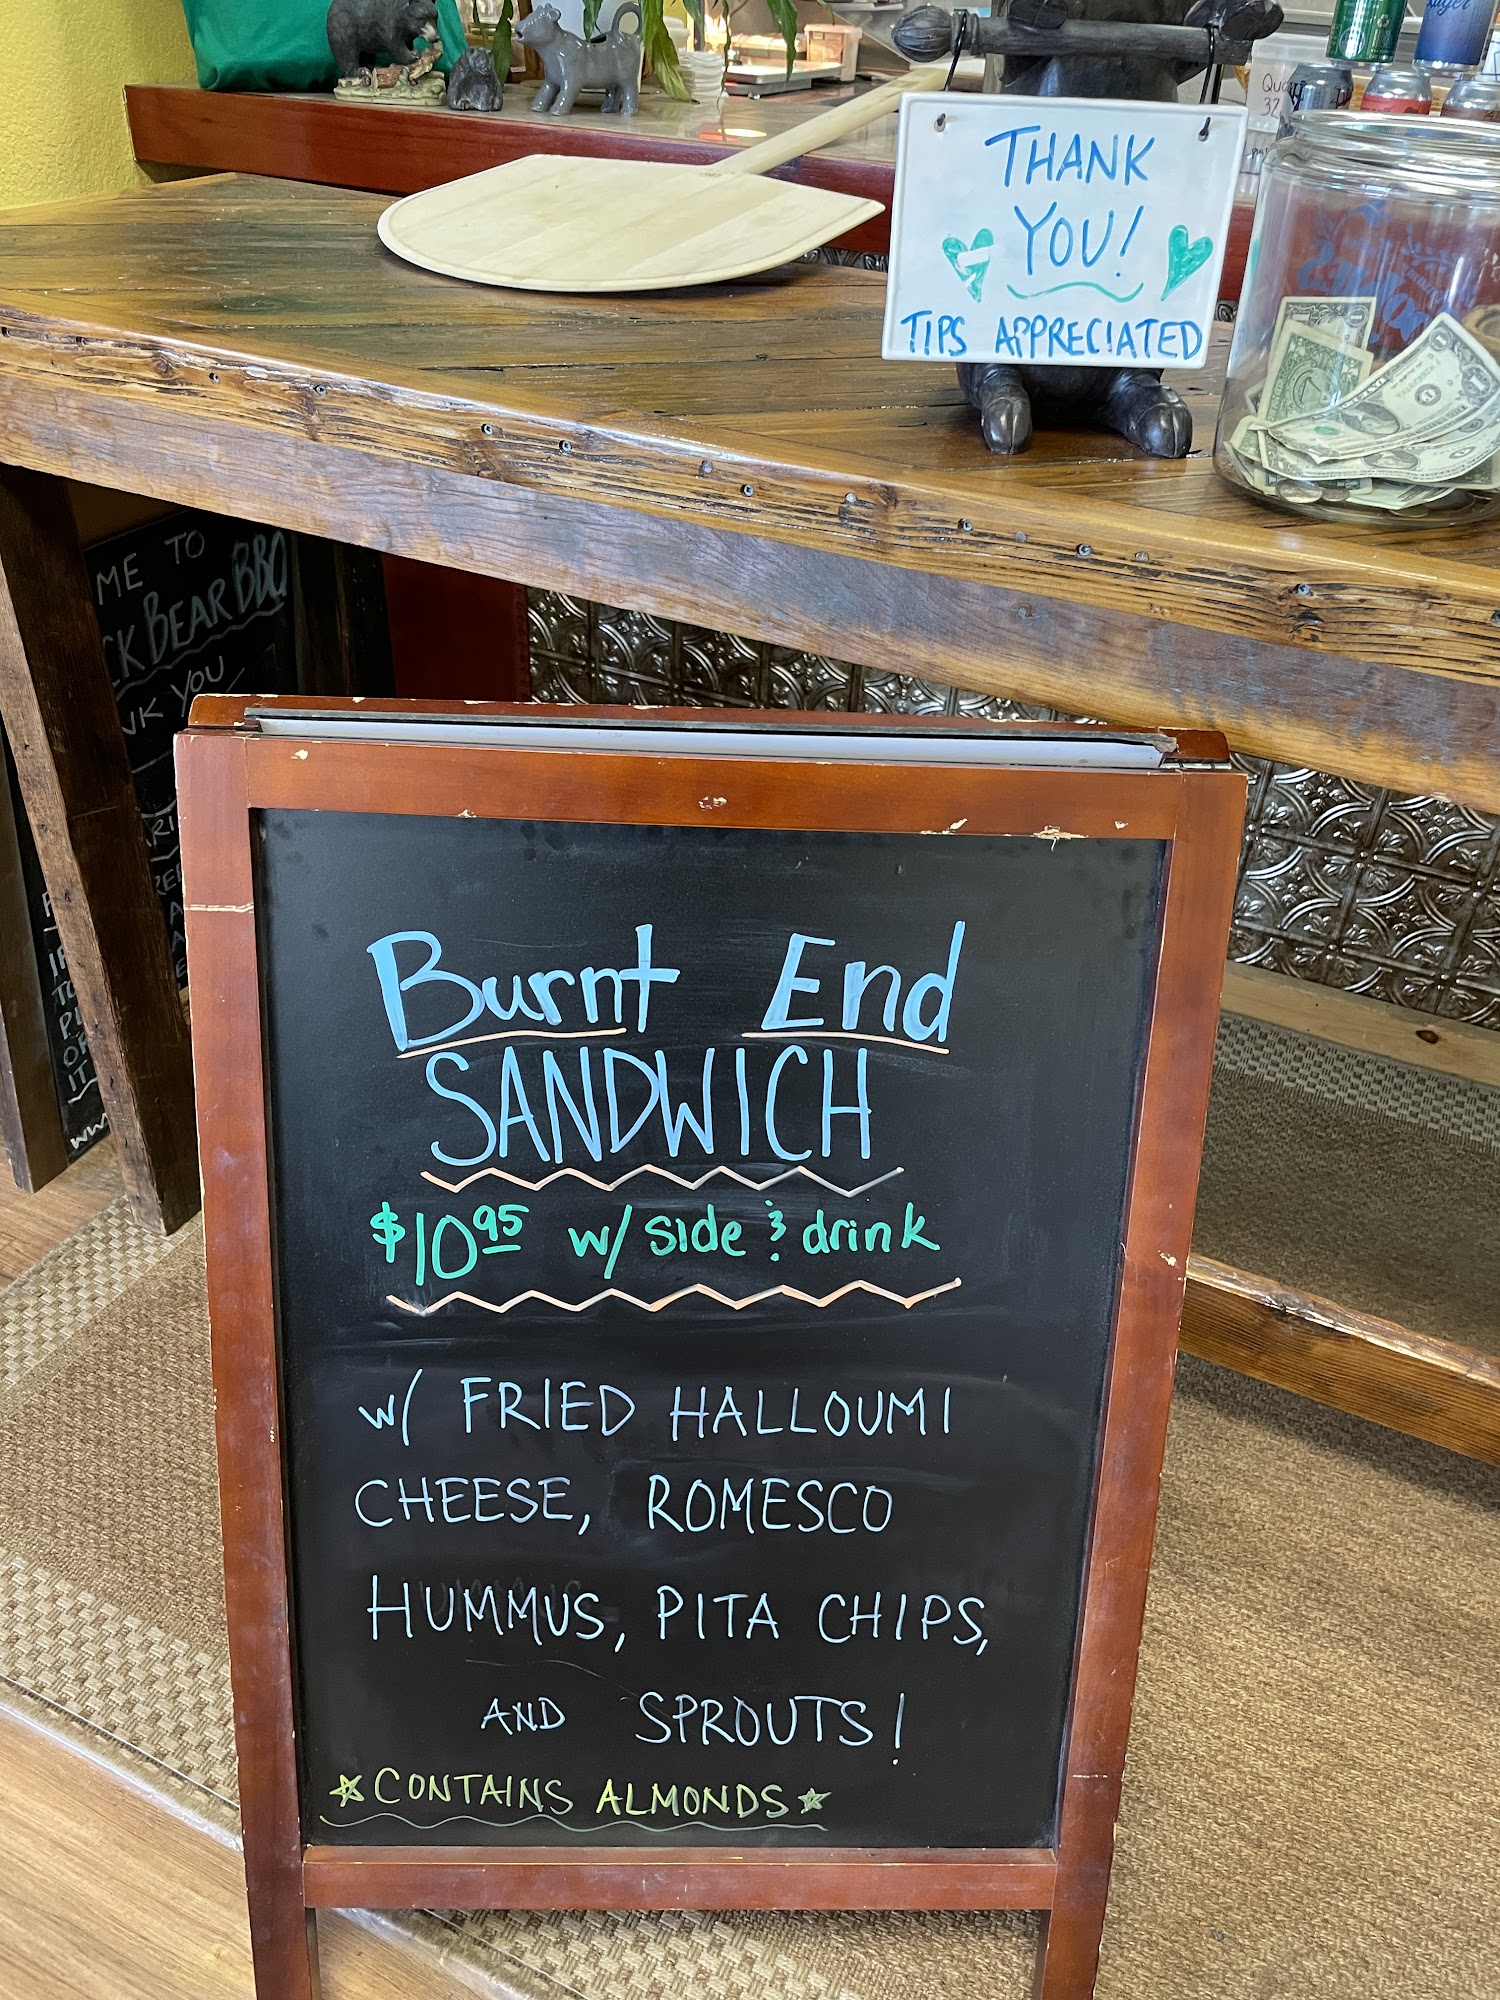 THANK
YOU!
TIPS APPRECIATED
ME TO
BEAR BBQ
YOU
Burnt End
SANDWICH
$10.95 w/ side & drink
w/ FRIED HALLOUMI
CHEESE, ROMESCO
HUMMUS, PITA CHIPS,
AND SPROUTS!
☆CONTAINS ALMONDS☆